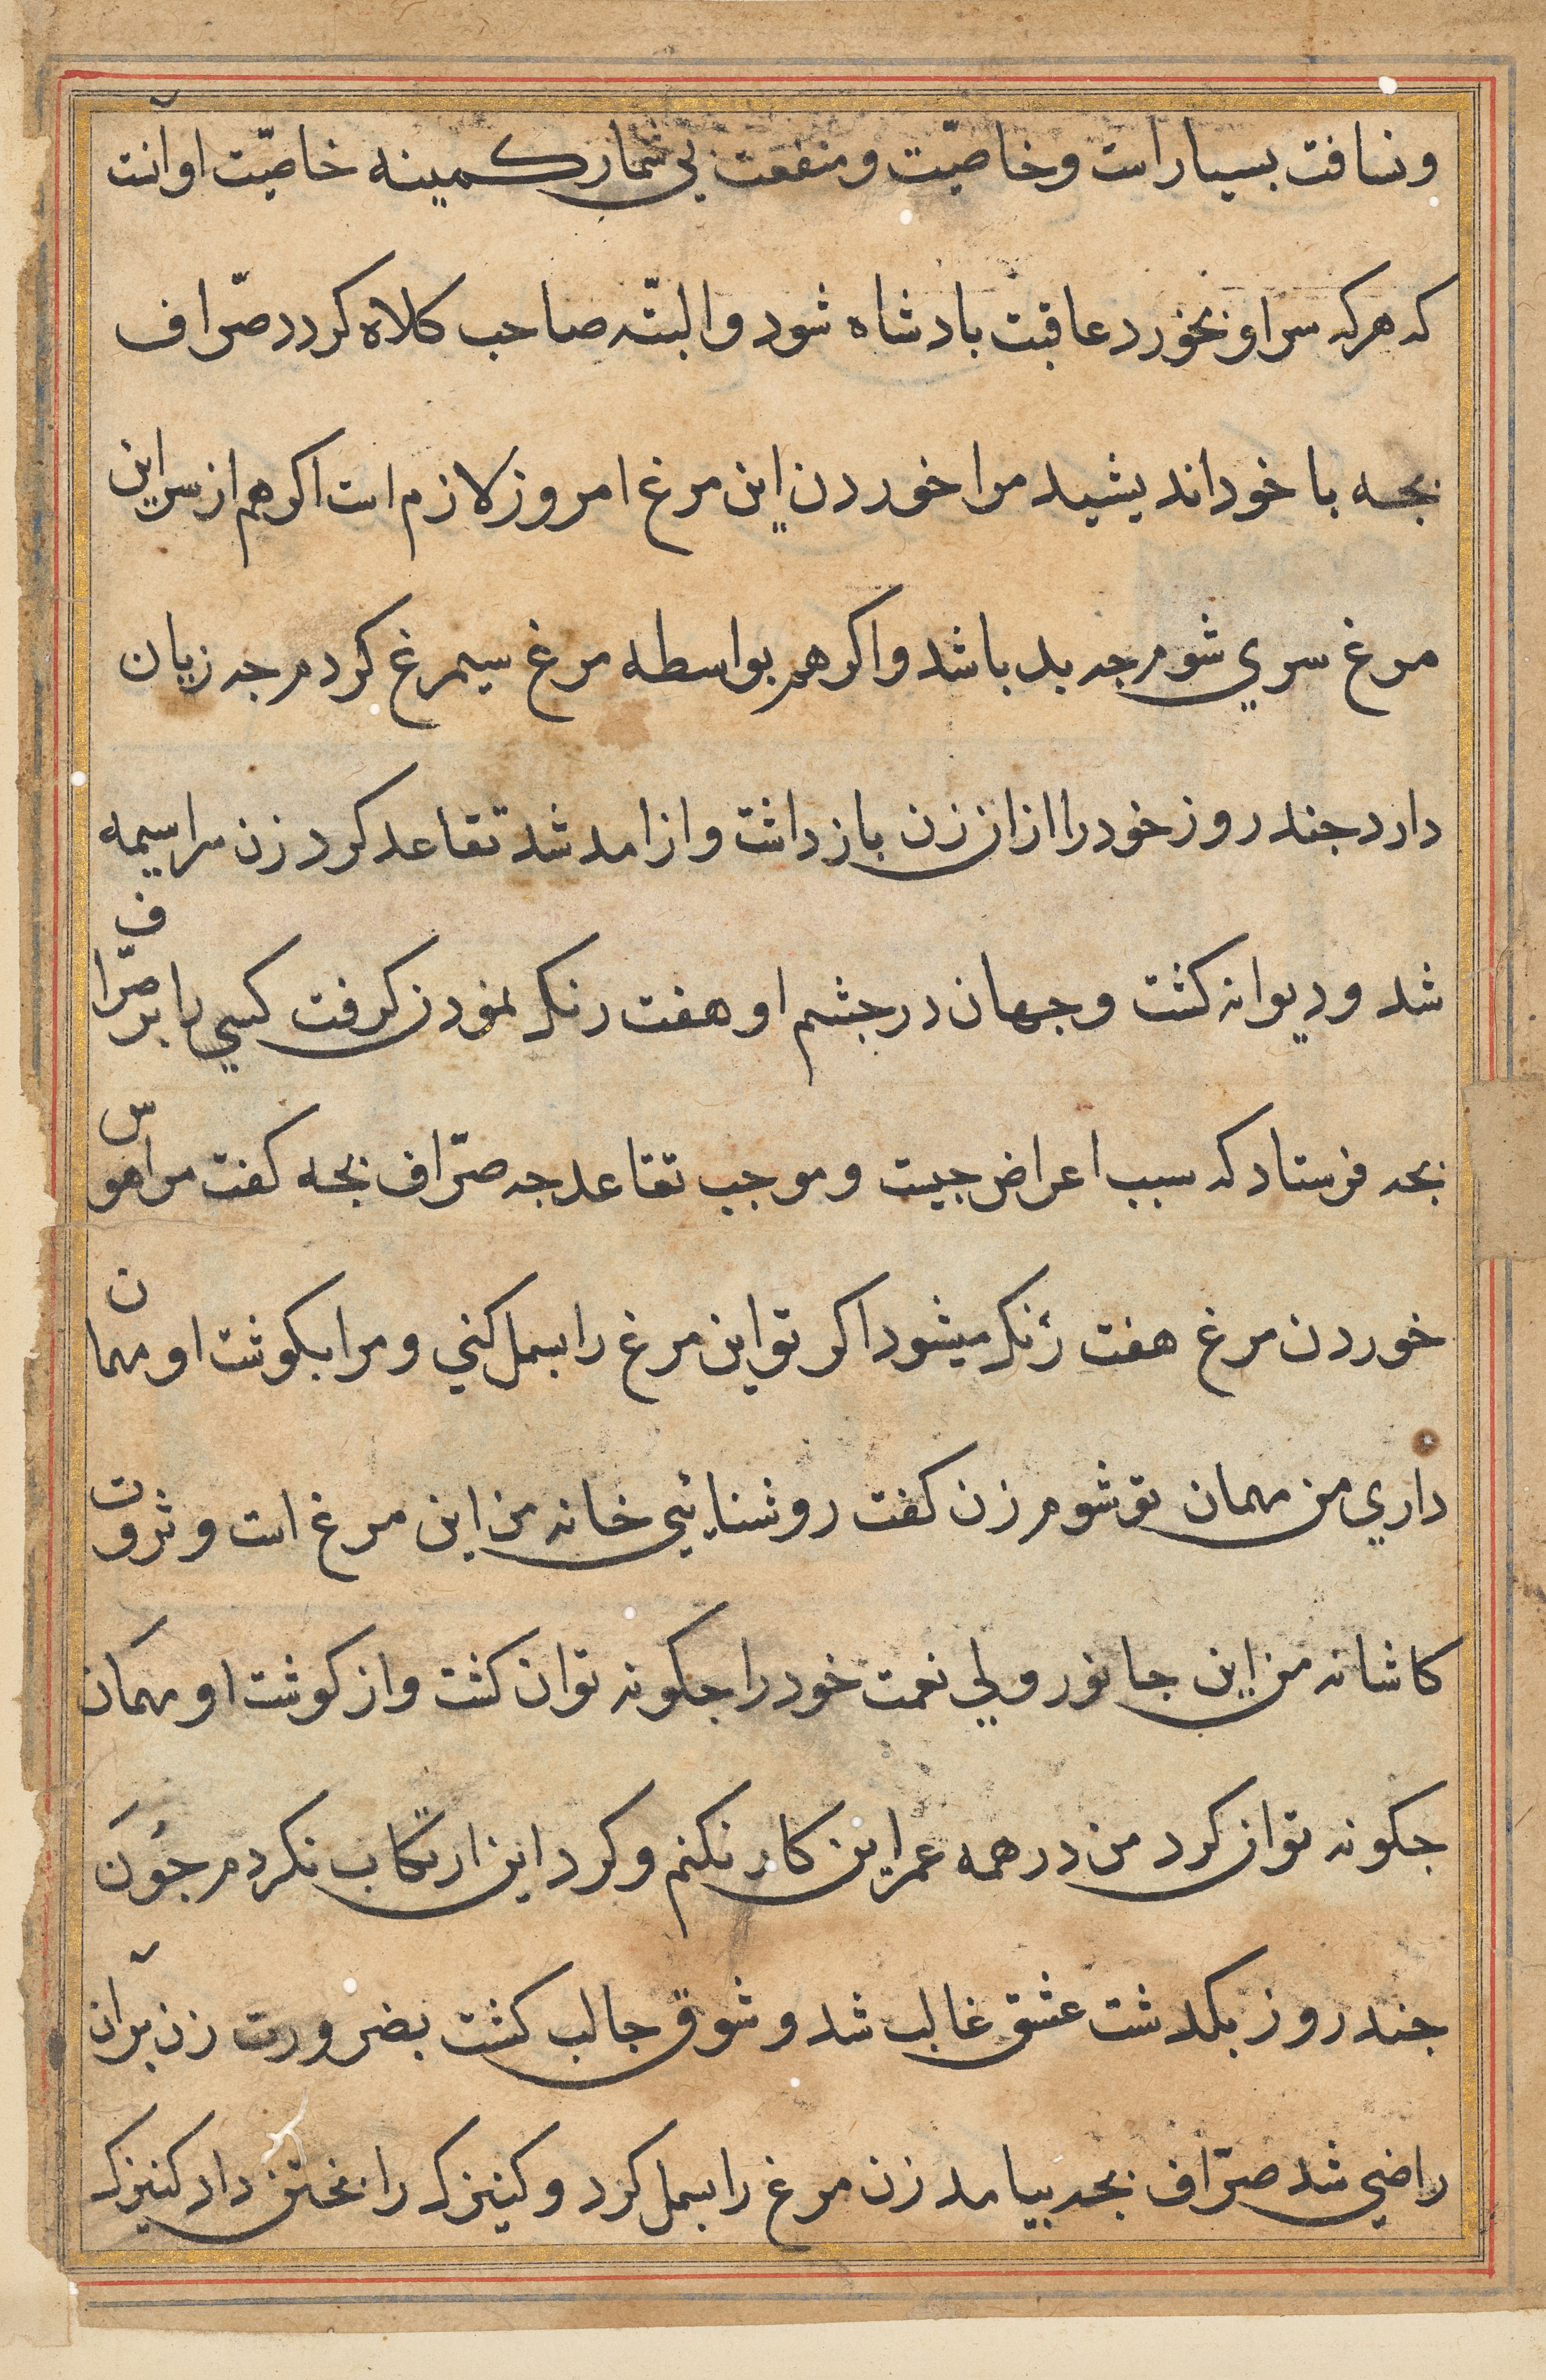 و نسافت بسیار است و خاصیّت و منفعت بی شمار کمینه خاصیّت او آنست
که هرکه سر او بخورد عاقبت بادشاه شود و البتّه صاحب کلاه کردد صرّاف
بجه با خود اندیشید مرا خوردن این مرغ امروز لازم است اکر هم از سر این
مرغ سری شوم جه بد باشد و اکر هم بواسطه مرغ سیمرغ کردم جه زیان
دارد جند روز خود را ازان زن باز داشت و از امد شد تقاعد کرد زن سراسیمه
شد و دیوانه کشت و جهان در جشم او هفت رنک نمودن کرفت کسی را بر صرّاف
بجه فرستاد که سبب اعراض جیست و موجب تقاعد جه صرّاف بجه کفت مرا هوس
خوردن مرغ هفت رنک میشود اکر تو این مرغ را بسمل کنی و مرا بکوشت او مهمان
داری من مهمان تو شوم زن کفت روشنائیی خانه من این مرغ است و ثروت
کاشانه من این جانور ولی نعمت خود را جکونه توان کشت و از کوشت او مهمان
جکونه توان کرد من در همه عمر این کار نکنم و کرد این ارتکاب نکردم جون
جند روز بکدشت عشق غالب شد و شوق جالب کشت بضرورت زن برآن
راضی شد صرّاف بجه بیامد زن مرغ را بسمل کرد و کنیزک را بختن داد کنیزک